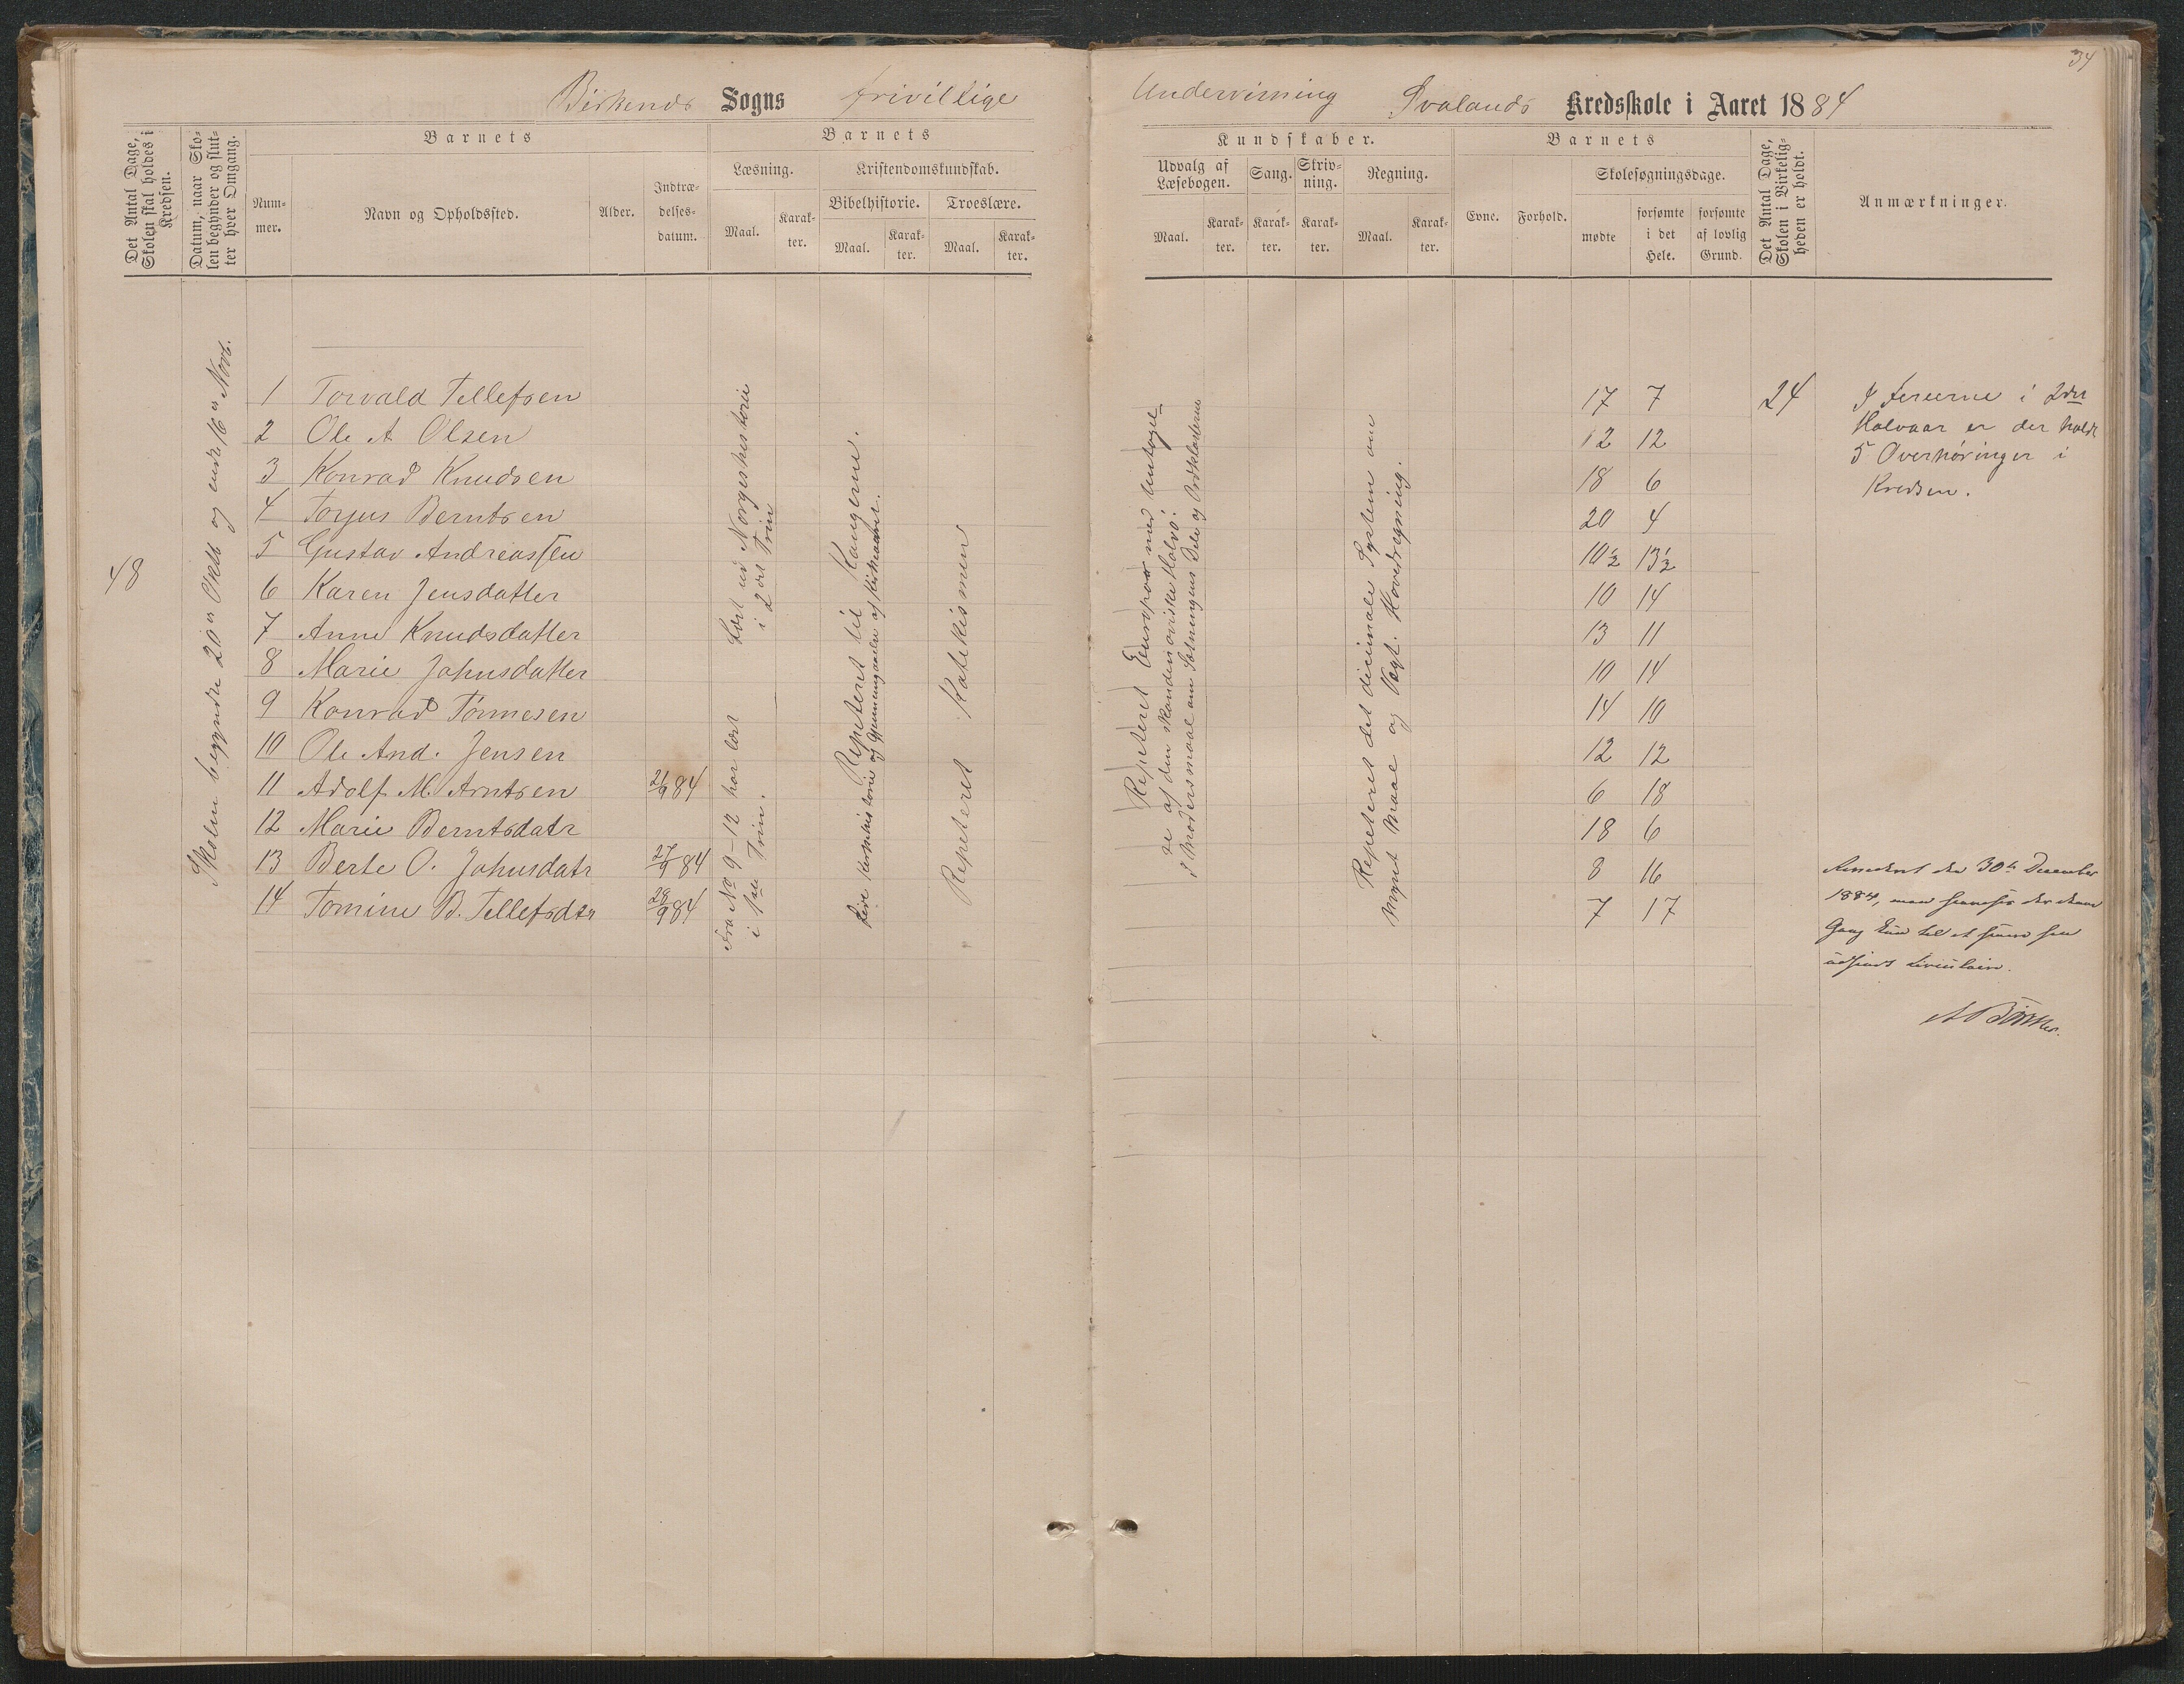 34
Birkenes Sogns frivillige Undervisning Svalands Kredsskole i Aaret 1884
Det Antal Dage, Skolen skal holdes i Kredsen.
Datum, naar Skolen begynder og slutter hver Omgang.
Barnets
Nummer.
Navn og Opholdssted.
Alder.
Indtrædelsesdatum.
Barnets
Læsning.
Maal.
Karakter.
Kristendomskundskab.
Bibelhistorie.
Maal.
Karakter.
Troeslære.
Maal.
Karakter.
Kundskaber.
Udvalg af Læsebogen.
Maal.
Karakter.
Sang.
Karakter.
Skrivning.
Karakter.
Regning.
Maal.
Karakter.
Barnets
Evne.
Forhold.
Skolesøgningsdage.
mødte
forsømte i det Hele.
forsømte af lovlig Grund.
Det Antal Dage, Skolen i Virkeligheden er holdt.
Anmærkninger.
48
Skolen begyndte 20de Oktb og endte 16de Novb.
1 Torvald Tellefsen 17 7
2 Ole A Olsen 12 12
3 Konrad Knudsen 18 6
4 Torjus Berntsen 20 4
5 Gustav Andreassen 10½ 13½
6 Karen Jensdatter 10 14
7 Anne Knudsdatter 13 11
8 Marie Johnsdatter 10 14
9 Konrad Tønnesen 14 10
10 Ole And. Jensen 12 12
11 Adolf M. Arntsen 21/9 84 6 18
12 Marie Berntsdatr 18 6
13 Berte O. Johnsdatr 27/9 84 8 16
14 Tomine B. Tellefsdtr 28/9 84 7 17
Læst ud Norgeshistorie
i 2det Trin
Fra No 9-12 har læst
i 1ste Trin.
Repeteret til Kongerne.
Kirkehistorie og Gjennemgaaelse af Kirkeaaret.
Repeteret Katekismen
Repeteret Europa med Undtagel
se af den skandinaviske Halvø.
I Modersmaal om Sætningens Dele og Ordklasserne
Repeteret det decimale System om
Mynt Maal og Vægt. Hovedregning.
24
I Ferierne i 2det
Halvaar er der holdt
5 Overhøringer i
Kredsen.
den 30te December
1884,
Gang til et